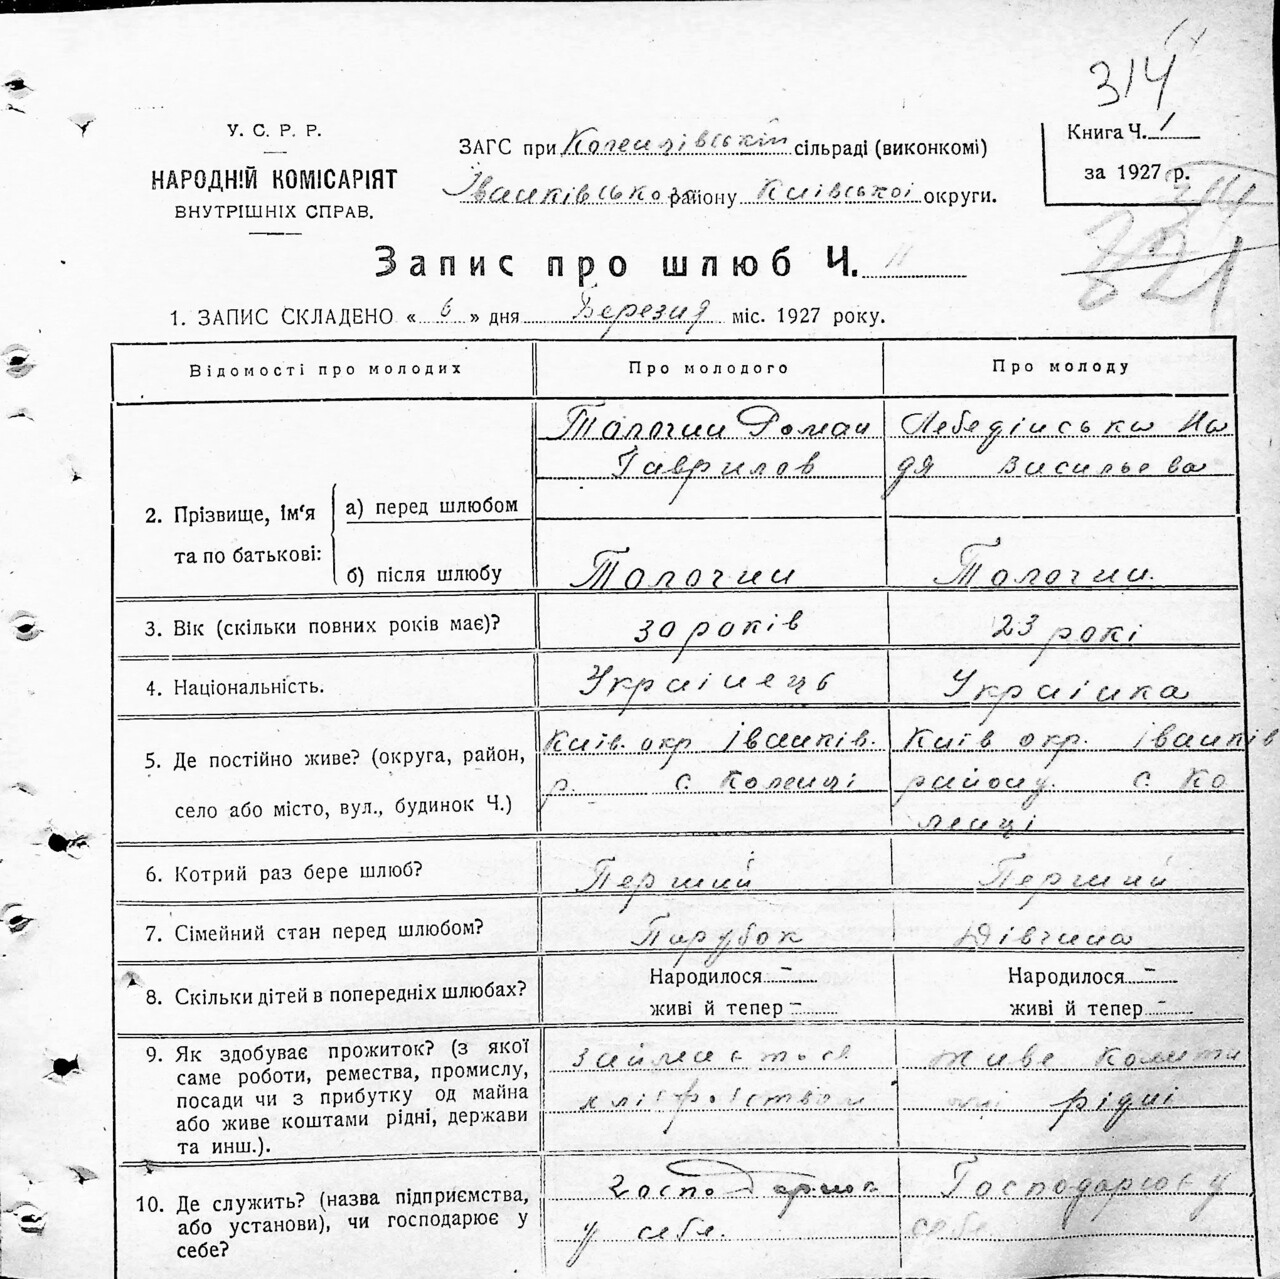 314
У. С. Р. Р.
НАРОДНІЙ КОМІСАРІЯТ
ВНУТРІШНІХ СПРАВ.
ЗАГС при Коленцівській сільраді (виконкомі)
Іванківсько района району Київської округи.
Книга Ч. 1
за 1927 р.
314
821
Запис про шлюб Ч. 11
1. ЗАПИС СКЛАДЕНО « 6 » дня Березня міс. 1927 року.
Відомості про молодих Про молодого Про молоду
2. Прізвище, ім‘я та по батькові:
а) перед шлюбом
Толочин Роман
Гаврилов
Лебедінська На
дя Васильева
б) після шлюбу Толочин Толочин.
3. Вік (скільки повних років має)? 30 років 23 рокі
4. Національність. Украінець Украінка
5. Де постійно живе? (округа, район,
село або місто, вул., будинок Ч.)
Київ. окр. Іванків.
р. с. Коленці
Київ окр. Іванків
району. с. Ко
ленці
6. Котрий раз бере шлюб? Перший Перший
7. Сімейний стан перед шлюбом? Парубок Дівчина
8. Скільки дітей в попередніх шлюбах?
Народилося - Народилося -
живі й тепер - живі й тепер -
9. Як здобуває прожиток? (з якої
саме роботи, ремества, промислу,
посади чи з прибутку од майна
або живе коштами рідні, держави
та инш.).
займається
хліборобством
живе
рідні
10. Де служить? (назва підприємства,
або установи), чи господарює у
себе?
Господарює
у себе.
Господарює у
себе.